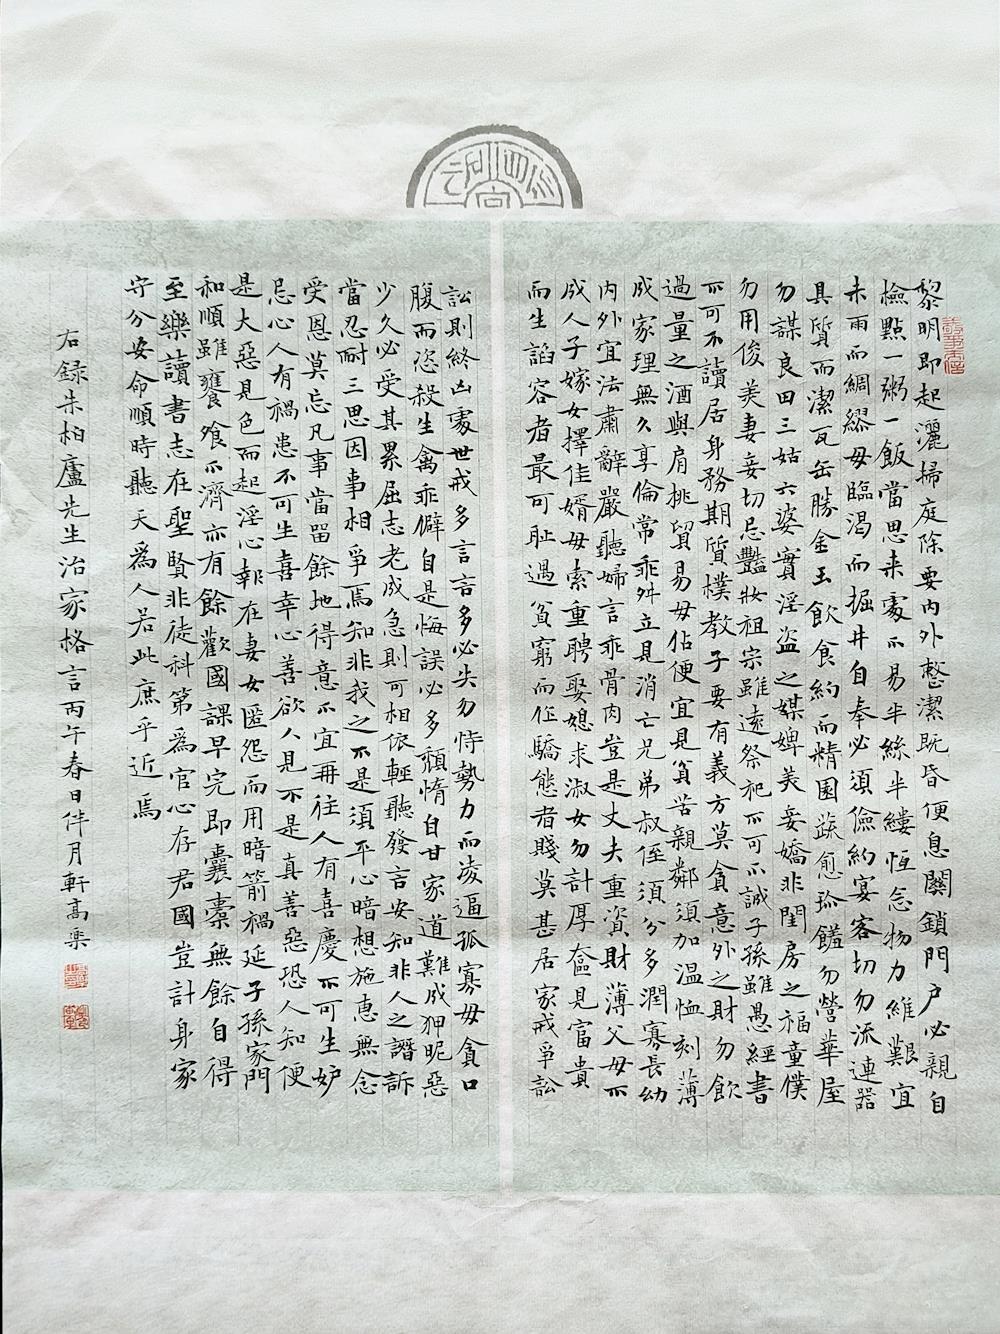 黎明即起灑掃庭除要內外整潔既昏便息關鎖門户必親自
檢點一粥一飯當思来處不易半絲半縷恆念物力維艱宜
未雨而綢繆毋臨渴而掘井自奉必須儉約宴客切勿流連器
具質而潔瓦缶勝金玉飲食約而精園蔬愈珍饈勿營華屋
勿謀良田三姑六婆實淫盗之媒婢美妾嬌非閨房之福童僕
勿用俊美妻妾切忌豔妝祖宗雖遠祭祀不可不誠子孫雖愚經書
不可不讀居身務期質樸教子要有義方莫貪意外之財勿飲
過量之酒與肩挑貿易毋佔便宜見貧苦親鄰須加温恤刻薄
成家理無久享倫常乖舛立見消亡兄弟叔侄須分多潤寡長幼
内外宜法肅辭嚴聽婦言乖骨肉豈是丈夫重資財薄父母不
成人子嫁女擇佳婿毋索重聘娶媳求淑女勿計厚奩見富貴
而生諂容者最可耻遇貧窮而作驕態者賤莫甚居家戒爭訟
訟則終凶處世戒多言言多必失勿恃勢力而凌逼孤寡毋貪口
腹而恣殺生禽乖僻自是悔誤必多頹惰自甘家道難成狎昵惡
少久必受其累屈志老成急則可相依輕聽發言安知非人之譖訴
當忍耐三思因事相爭焉知非我之不是須平心暗想施惠無念
受恩莫忘凡事當留餘地得意不宜再往人有喜慶不可生妒
忌心人有禍患不可生喜幸心善欲人見不是真善惡恐人知便
是大惡見色而起淫心報在妻女匿怨而用暗箭禍延子孫家門
和順雖饔飧不濟亦有餘歡國課早完即囊橐無餘自得
至樂讀書志在聖賢非徒科第為官心存君國豈計身家
守分安命順時聽天為人若此庶乎近焉
右録朱柏廬先生治家格言丙午春日伴月軒高樂